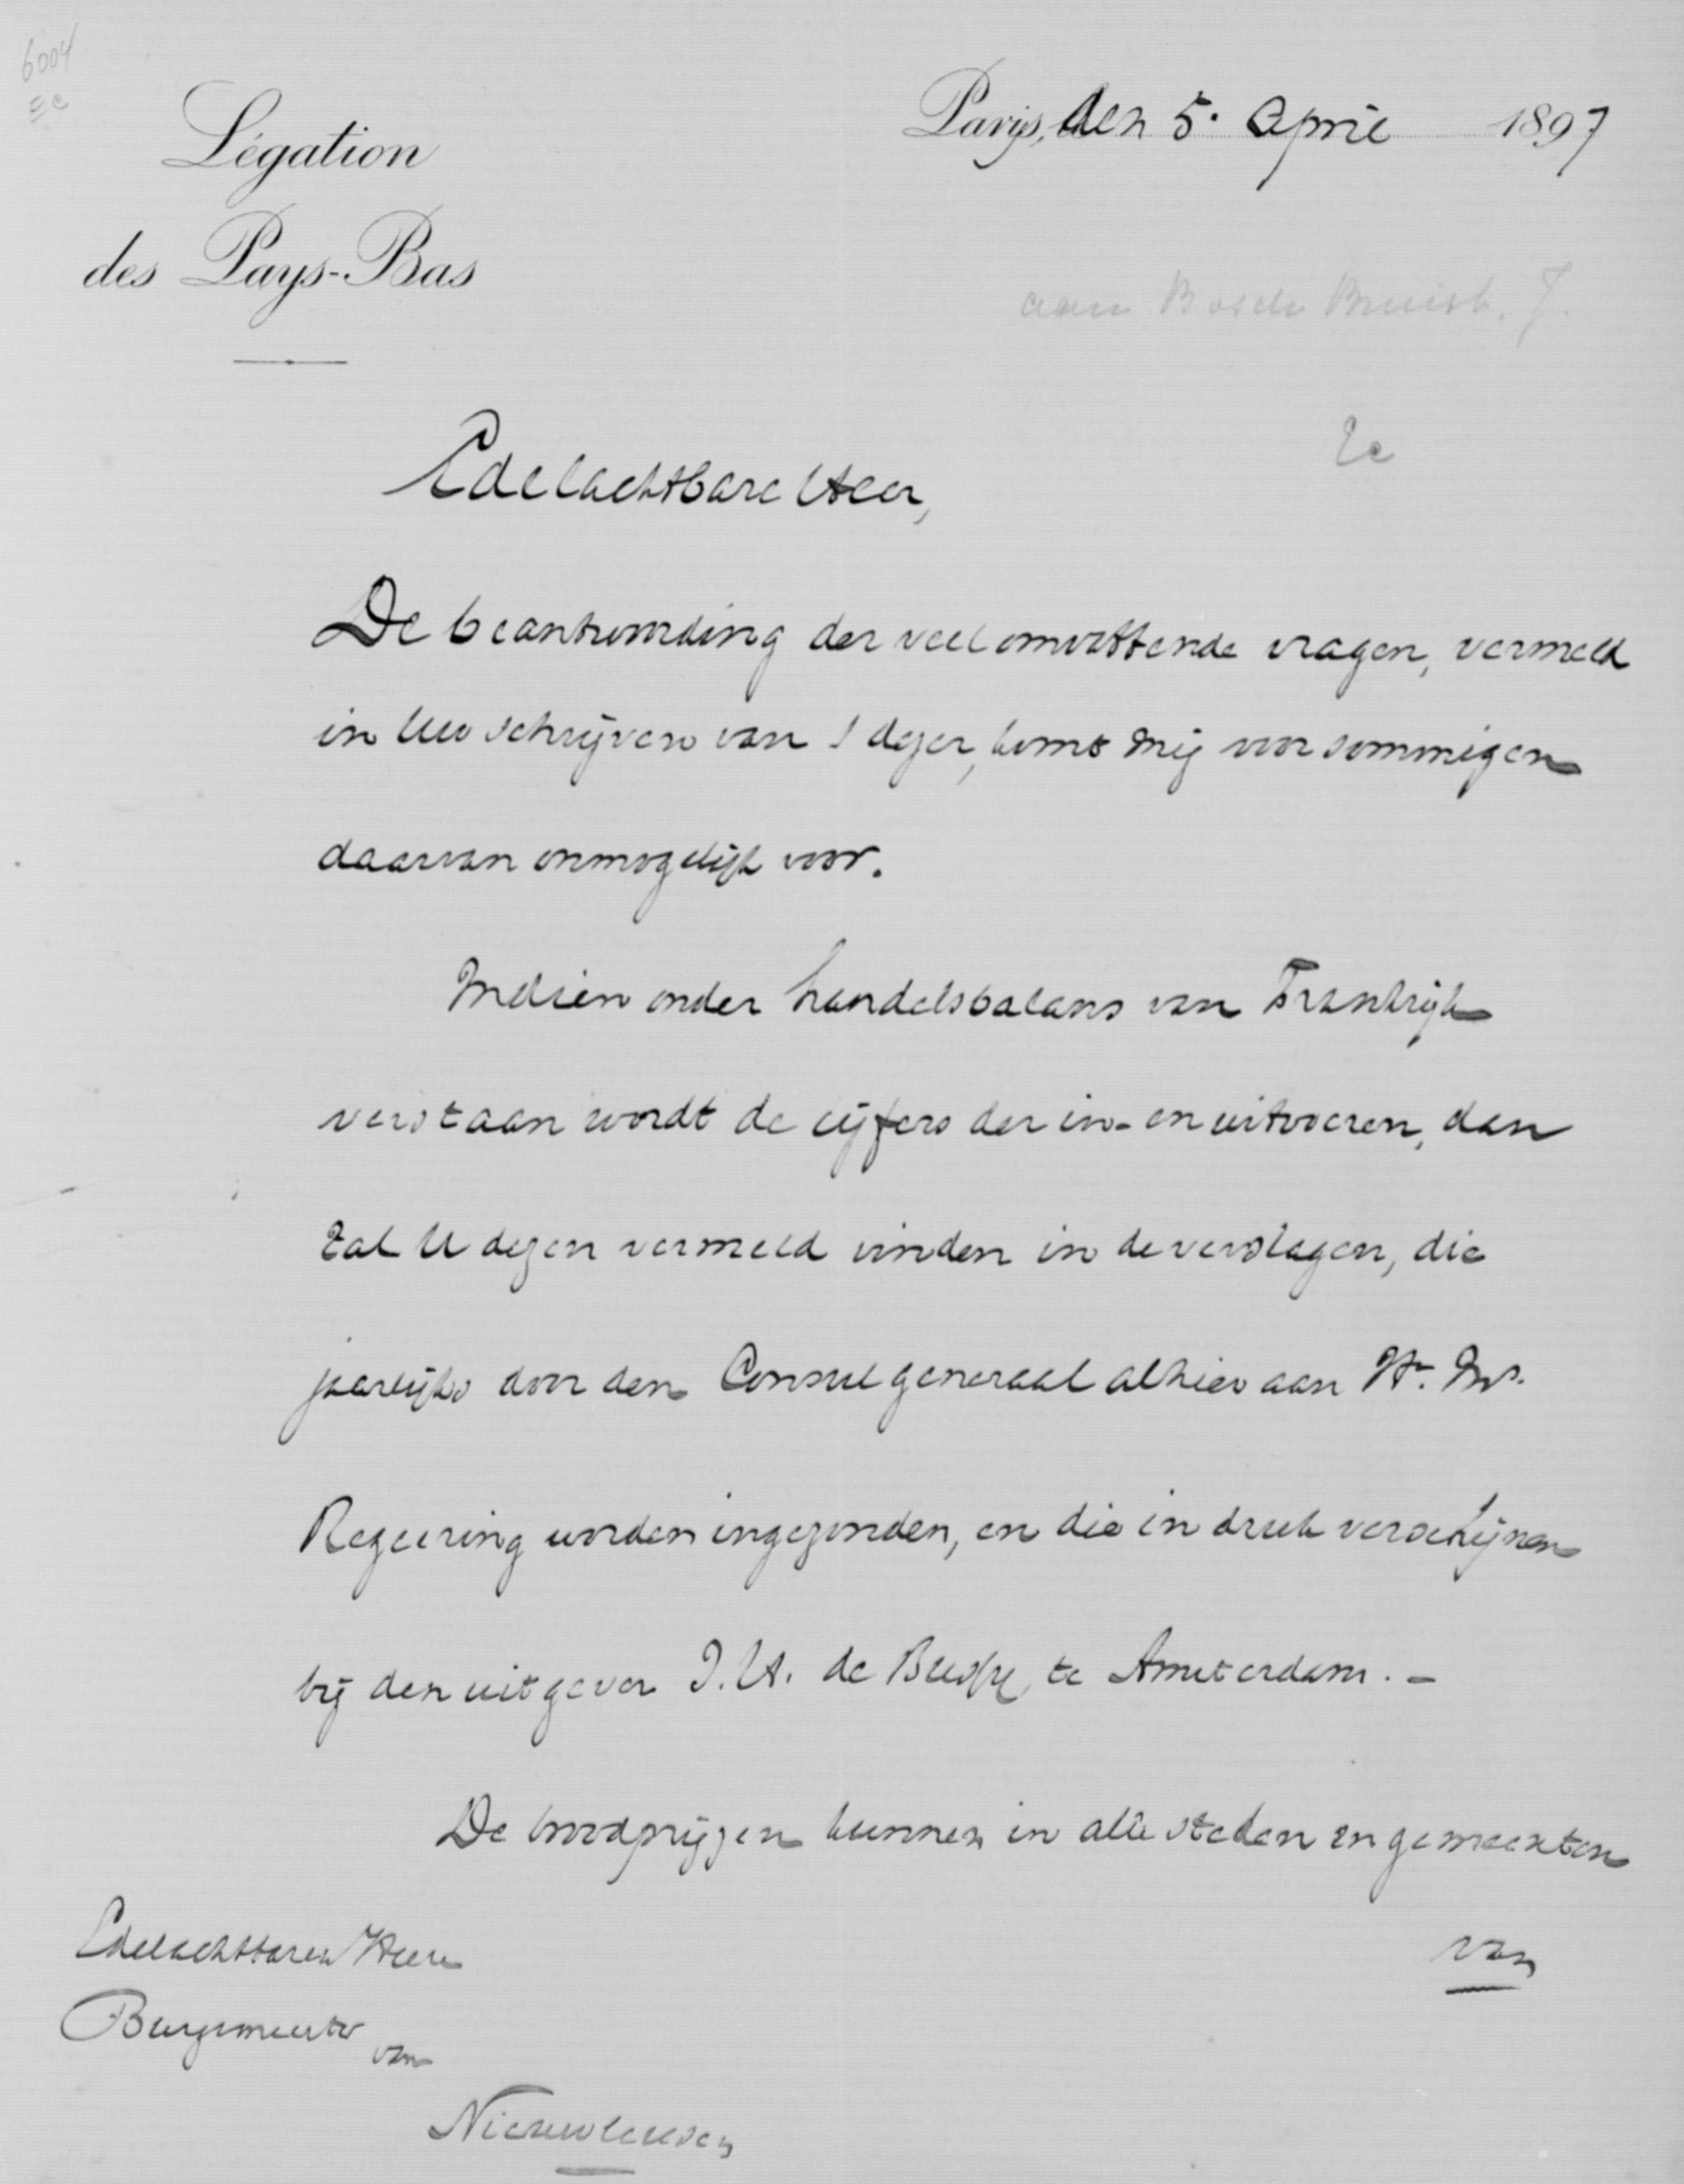 6004
Légation
des Pays-Bas
Parijs, den 5. April 1897
aan Bosch Bruist. J.
2e
Edelachtbare Heer,
De beantwoording der veel omvattende vragen, vermeld
in Uw schrijven van 1 dezer, komt mij voor sommigen
daarvan onmogelijk voor.
Indien onder handelsbalans van Frankrijk
verstaan wordt de cijfers der in- en uitvoeren, dan
zal U dezen vermeld vinden in de verslagen, die
jaarlijks door den Consul generaal alhier aan Hr. Ms.
Regeering worden ingezonden, en die in druk verschijnen
bij den uitgever J.H. de Bussy, te Amsterdam. -
De broodprijzen kunnen in alle steden en gemeenten
van
Edelachtbaren Heere
Burgemeester
van
Nieuwleusen